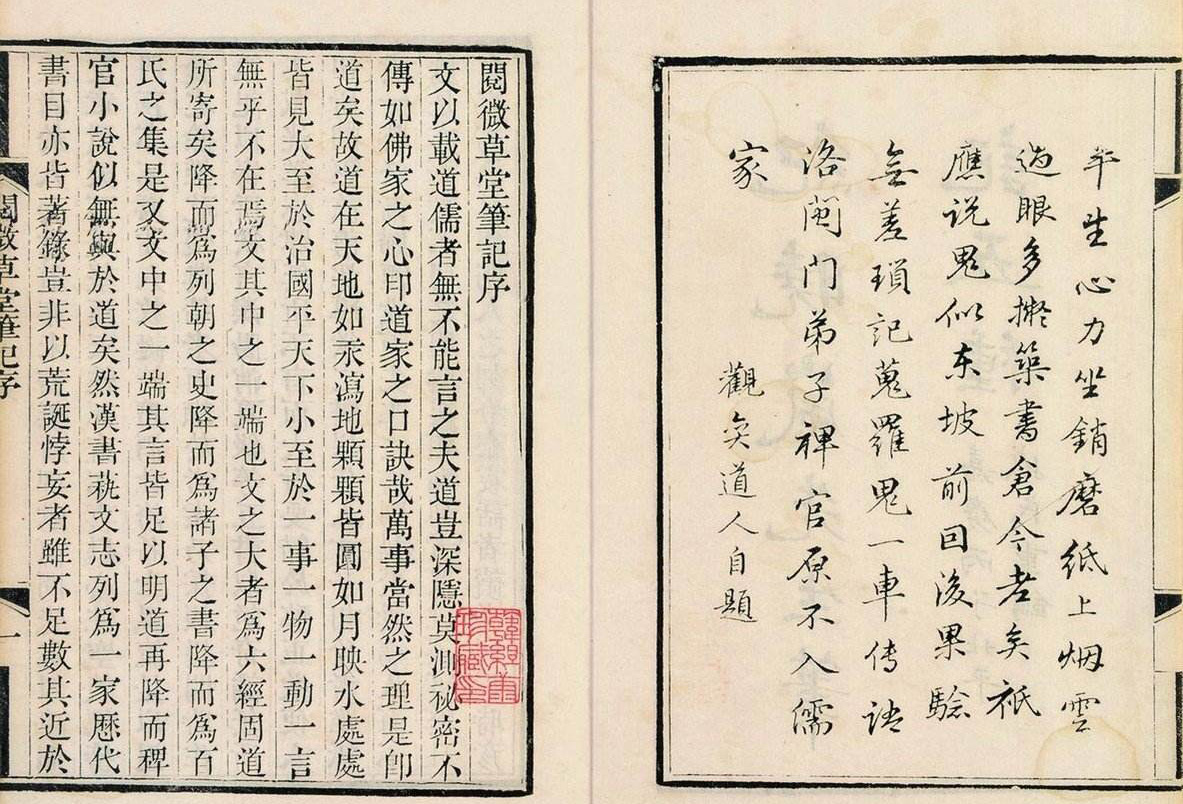 平生心力坐銷磨紙上烟雲
過眼多擬築書倉今老矣祇
應说鬼似东坡前因後果驗
無差瑣記蒐羅鬼一車传语
洛閩门弟子稗官原不入儒
家
觀奕道人自題
閱微草堂筆記序
文以載道儒者無不能言之夫道豈深隱莫測祕密不
傳如佛家之心印道家之口訣哉萬事當然之理是卽
道矣故道在天地如汞瀉地顆顆皆圓如月映水處處
皆見大至於治國平天下小至於一事一物一動一言
無乎不在焉文其中之一端也文之大者爲六經固道
所寄矣降而爲列朝之史降而爲諸子之書降而爲百
氏之集是又文中之一端其言皆足以明道再降而稗
官小說似無與於道矣然漢書蓺文志列爲一家歷代
書目亦皆著錄豈非以荒誕悖妄者雖不足數其近於
閱微草堂筆記序
一